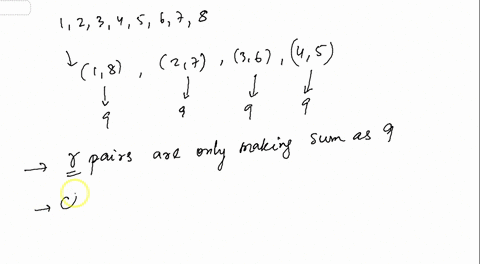 1, 2, 3, 4, 5, 6, 7, 8
(1,8) , (2,7) , (3,6) , (4,5)
9 9 9 9
→ r pairs are only making sum as 9
→